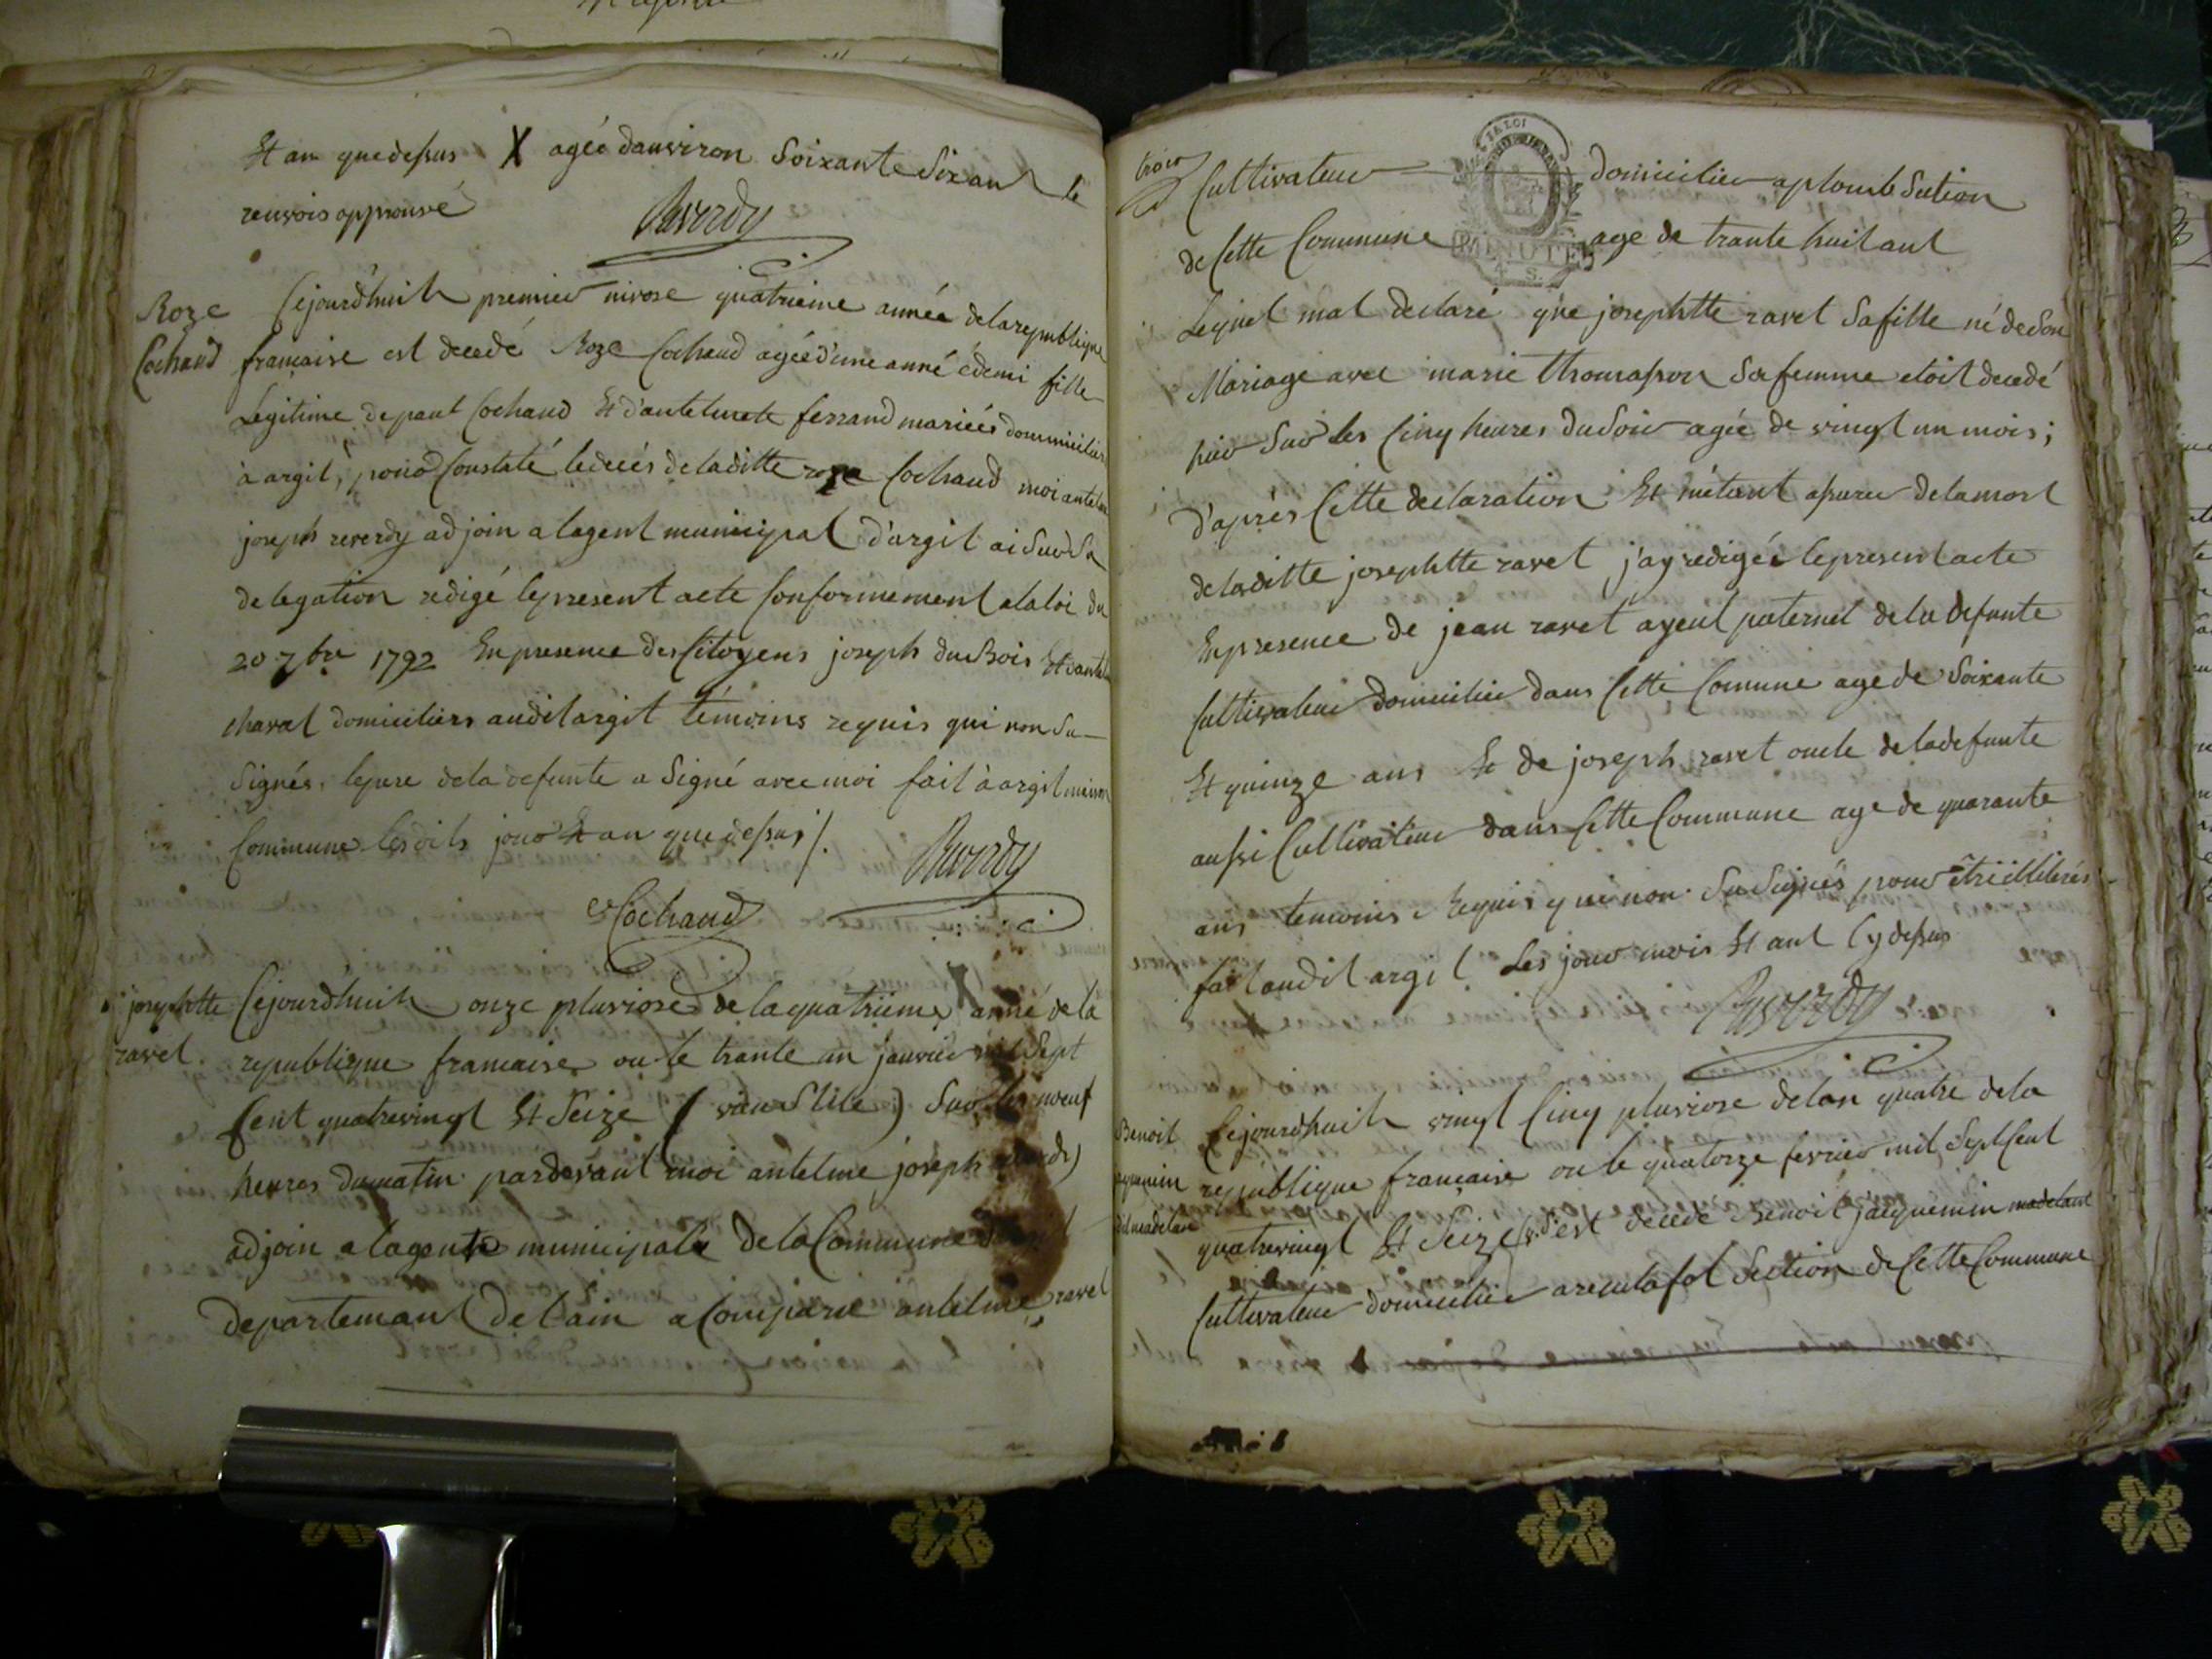 Et an que dessus X agée danviron Soixante Six ans le
renvois approuvé
Reverdy
Roze
Cochaud
Cejourd'huit premier nivose quatrieme année de la republique
francaise est decedé Roze Cochaud agée d'une anné é demi fille
Legitime de paul Cochaud Et d'antelmete ferrand mariées dommiciliers
à argit, pour Constaté le decés de laditte roze Cochaud moi antelme
joseph reverdy adjoin a lagent municipal d'argit ai Sur Sa
delegation redigé le present acte Conformement a la loi du
20 7bre 1792 En presence des Citoyens joseph du Bois Et
charvet domiciliers audit argit témoins requis qui non Su
Signés, le pere de la defunte a Signé avec moi fait à argit maison
Commune les dits jour Et an que dessus /.
Reverdy
Cochaud
josephtte
ravet.
Cejourd'huit onze pluviose de la quatrieme X anné de la
republique francaise ou le trante un janvier mil Sept
Cent quatrevingt Et Seize ( vieu Stile ) Sur les neuf
heures du matin pardevant moi antelme joseph
adjoin a lagente municipale de la Commune
departemant de l'ain a Comparu antelme ravet
trois
Cultivateur domicilier a plomb Section
LA LOI
MINUTE
4 S.
de Cette Commune age de trante huit ant
Lequel mat declaré que josephtte ravet Sa fille né de Son
Mariage avec marie thomasson Sa femme etoit decedé
hier Sur les Cinq heures du Soir agée de vingt un mois;
d'après Cette declaration Et m'étant assurer de la mort
de laditte josephtte ravet j'ay redigée le present acte
En presence de jean ravet ayeul paternel de la defunte
Cultivateur domicilier dans Cette Comune age de Soixante
Et quinze ans Et de joseph ravet oncle de la defunte
aussi Cultivateur dans Cette Commune age de quarante
ans temoins Requis qui non Su Signés pour être illiterés
fait audit argit Les jour mois Et ant Cy dessus
Reverdy
Benoit
jaquemin
dit madelant
Cejourdhuit vingt Cinq pluviose de lan quatre de la
republique française ou le quatorze fevrier mil Sept Cent
quatrevingt Et Seize est decede Benoit jacquemin madelant
Cultivateur domicilier a reculafol Section de Cette Commune